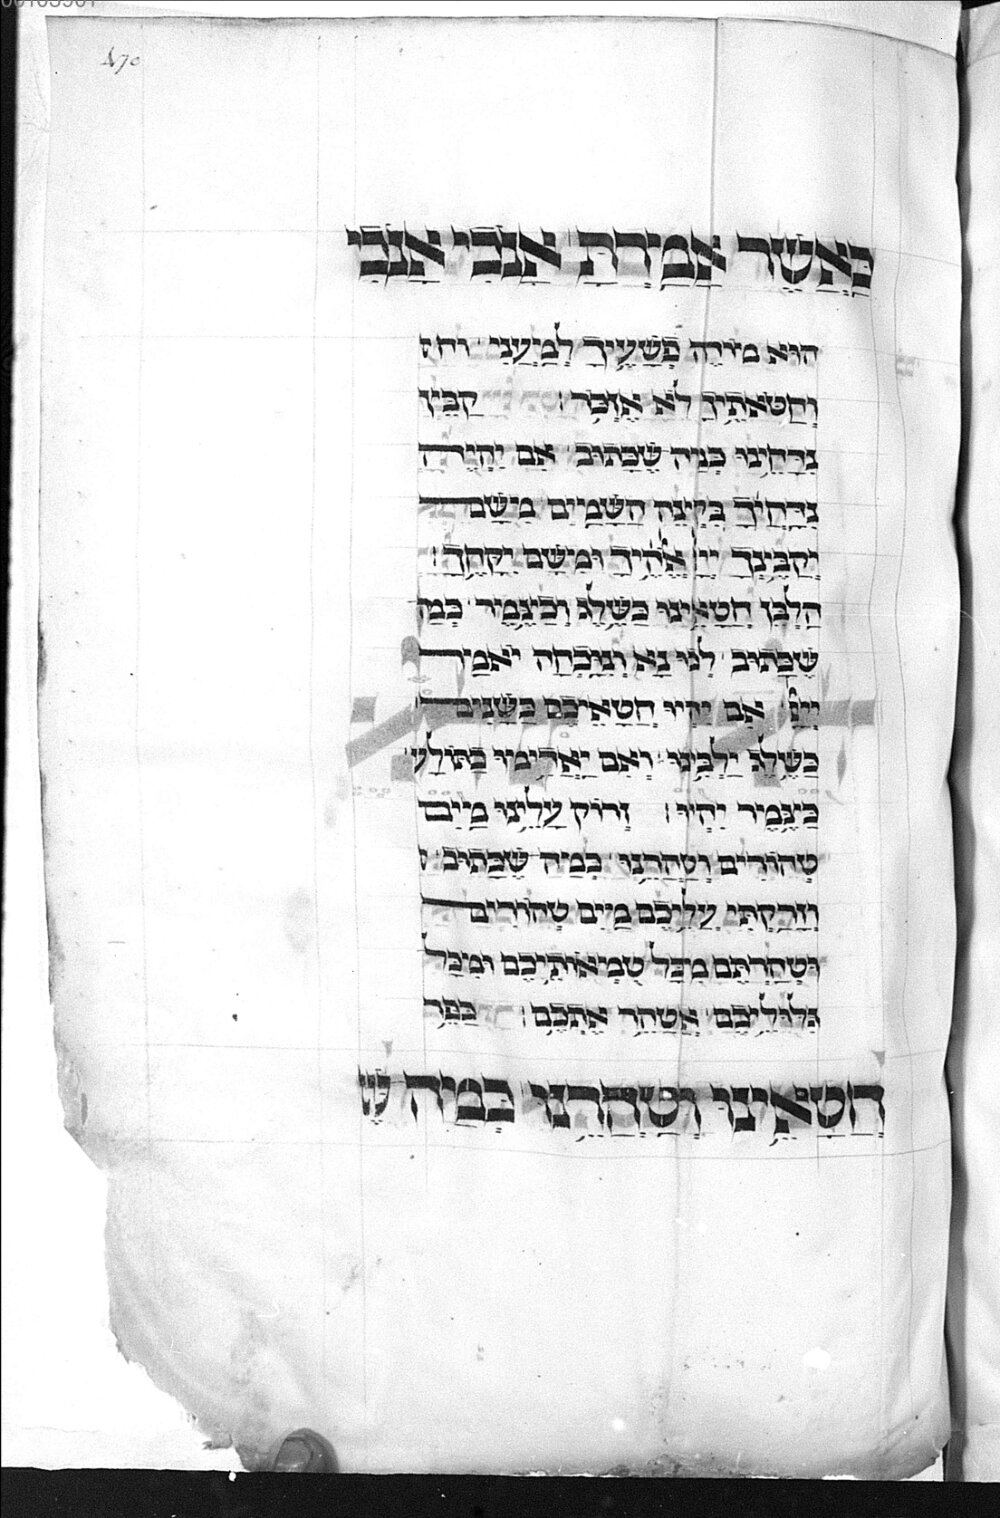 470
כַּאֲשֶׁר אָמַרְתָּ אָנֹכִי אָנֹכִי
הוּא מוֹחֶה פְשָׁעֶיךָ לְמַעֲנִי
וְחַטֹּאתֶיךָ לֹא אֶזְכֹּר׃ קַבֵּץ
נִדָּחֵינוּ כְּמָה שֶׁכָּתוּב אִם יִהְיֶה
נִדַּחֲךָ בִּקְצֵה הַשָּׁמַיִם מִשָּׁם
יְקַבֶּצְךָ יְיָ אֱלֹהֶיךָ וּמִשָּׁם יִקָּחֶךָ׃
הַלְבֵּן חֲטָאֵינוּ כַּשֶּׁלֶג וְכַצֶּמֶר כְּמָה
שֶׁכָּתוּב לְכוּ נָא וְנִוָּכְחָה יֹאמַר
יְיָ אִם יִהְיוּ חֲטָאֵיכֶם כַּשָּׁנִים
כַּשֶּׁלֶג יַלְבִּינוּ וְאִם יַאְדִּימוּ כַתּוֹלָע
כַּצֶּמֶר יִהְיוּ׃ זְרוֹק עָלֵינוּ מַיִם
טְהוֹרִים וְטַהֲרֵנוּ כְּמָה שֶׁכָּתוּב
וְזָרַקְתִּי עֲלֵיכֶם מַיִם טְהוֹרִים
וּטְהַרְתֶּם מִכָּל טֻמְאוֹתֵיכֶם וּמִכָּל
גִּלּוּלֵיכֶם אֲטַהֵר אֶתְכֶם׃ כַּפֵּר
חֲטָאֵינוּ וְטַהֲרֵנוּ כְּמָה שֶׁ